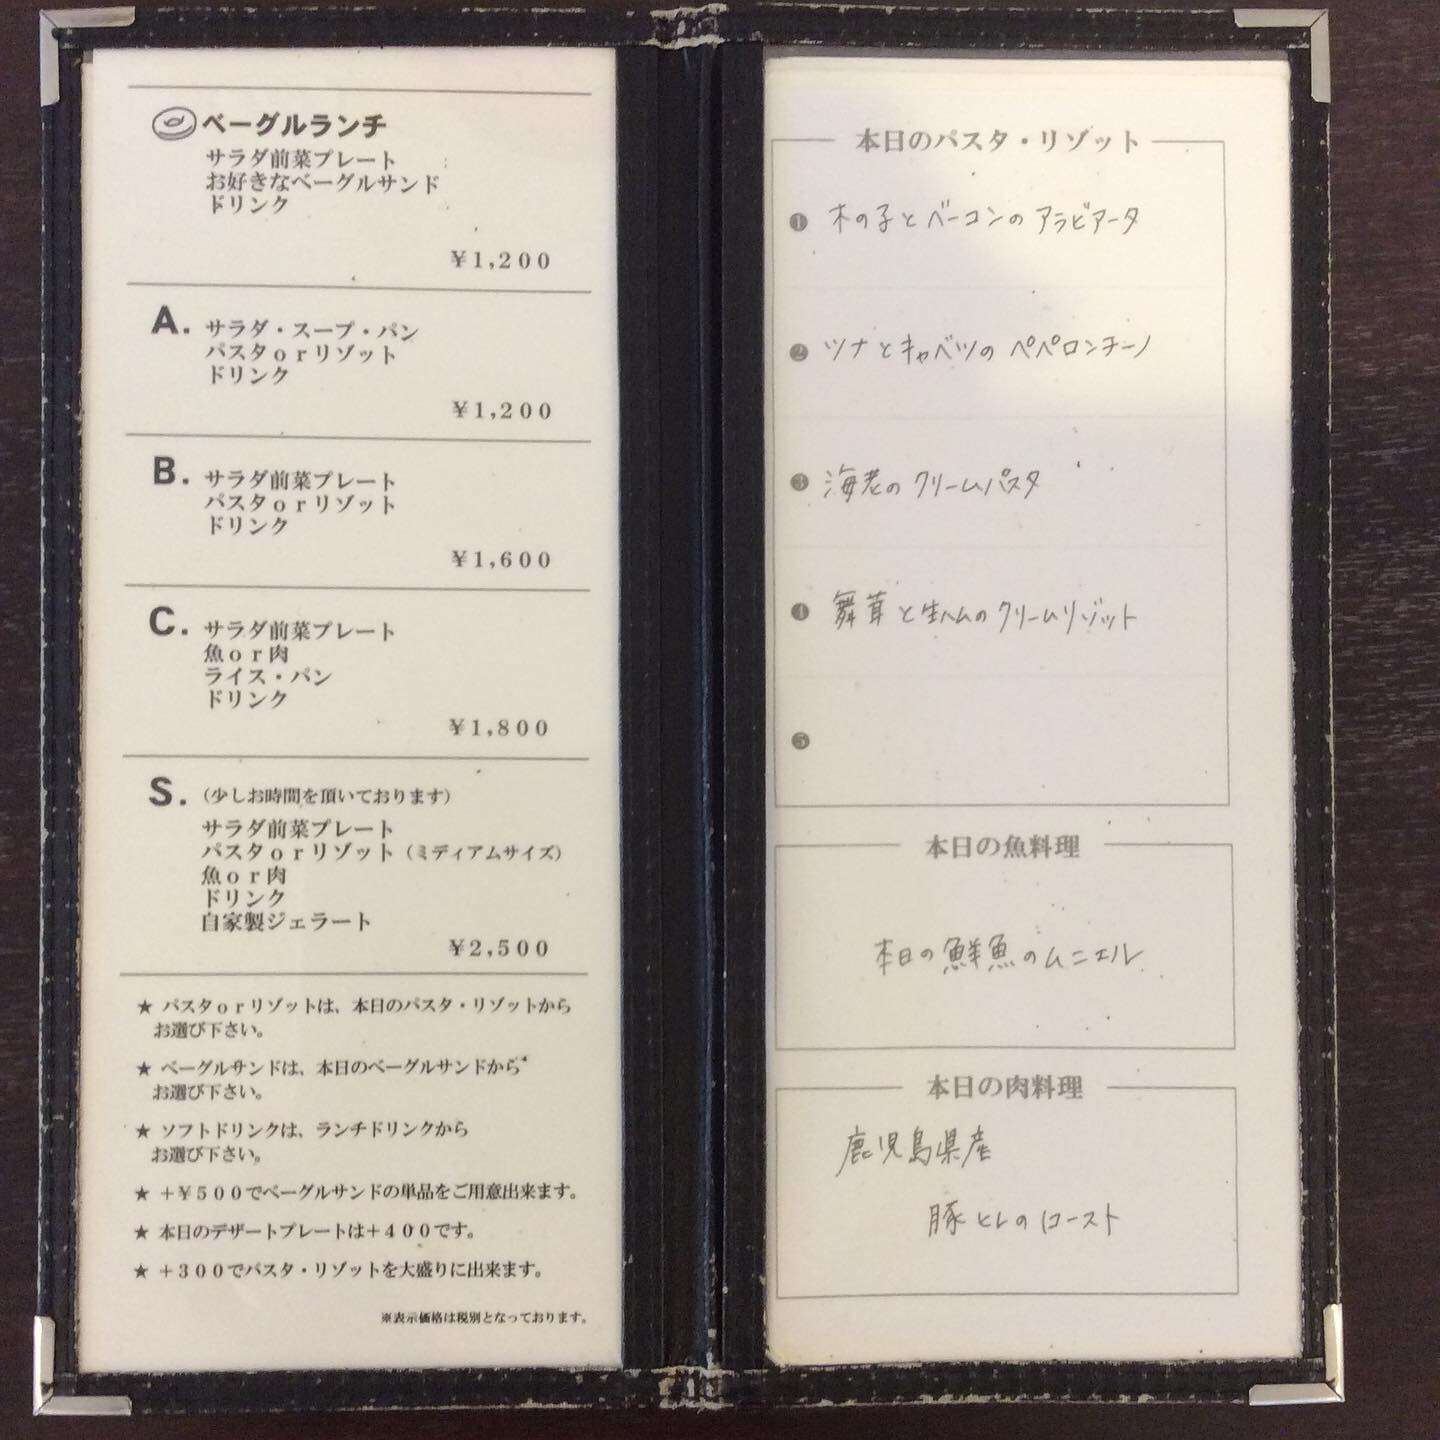 ベーグルランチ
サラダ前菜プレート
お好きなベーグルサンド
ドリンク
¥1,200
A. サラダ・スープ・パン
パスタorリゾット
ドリンク
¥1,200
B. サラダ前菜プレート
パスタorリゾット
ドリンク
¥1,600
C. サラダ前菜プレート
魚or肉
ライス・パン
ドリンク
¥1,800
S. (少しお時間を頂いております)
サラダ前菜プレート
パスタorリゾット(ミディアムサイズ)
魚or肉
ドリンク
自家製ジェラート
¥2,500
★ パスタorリゾットは、本日のパスタ・リゾットから
お選び下さい。
★ ベーグルサンドは、本日のベーグルサンドから
お選び下さい。
★ ソフトドリンクは、ランチドリンクから
お選び下さい。
★ +¥500でベーグルサンドの単品をご用意出来ます。
★ 本日のデザートプレートは+400です。
★ +300でパスタ・リゾットを大盛りに出来ます。
※表示価格は税別となっております。
本日のパスタ・リゾット
❶ 木の子とベーコンのアラビアータ
❷ ツナとキャベツのペペロンチーノ
❸ 海老のクリームパスタ
❹ 舞茸と生ハムのクリームリゾット
❺
本日の魚料理
本日の鮮魚のムニエル
本日の肉料理
鹿児島県産
豚ヒレのロースト